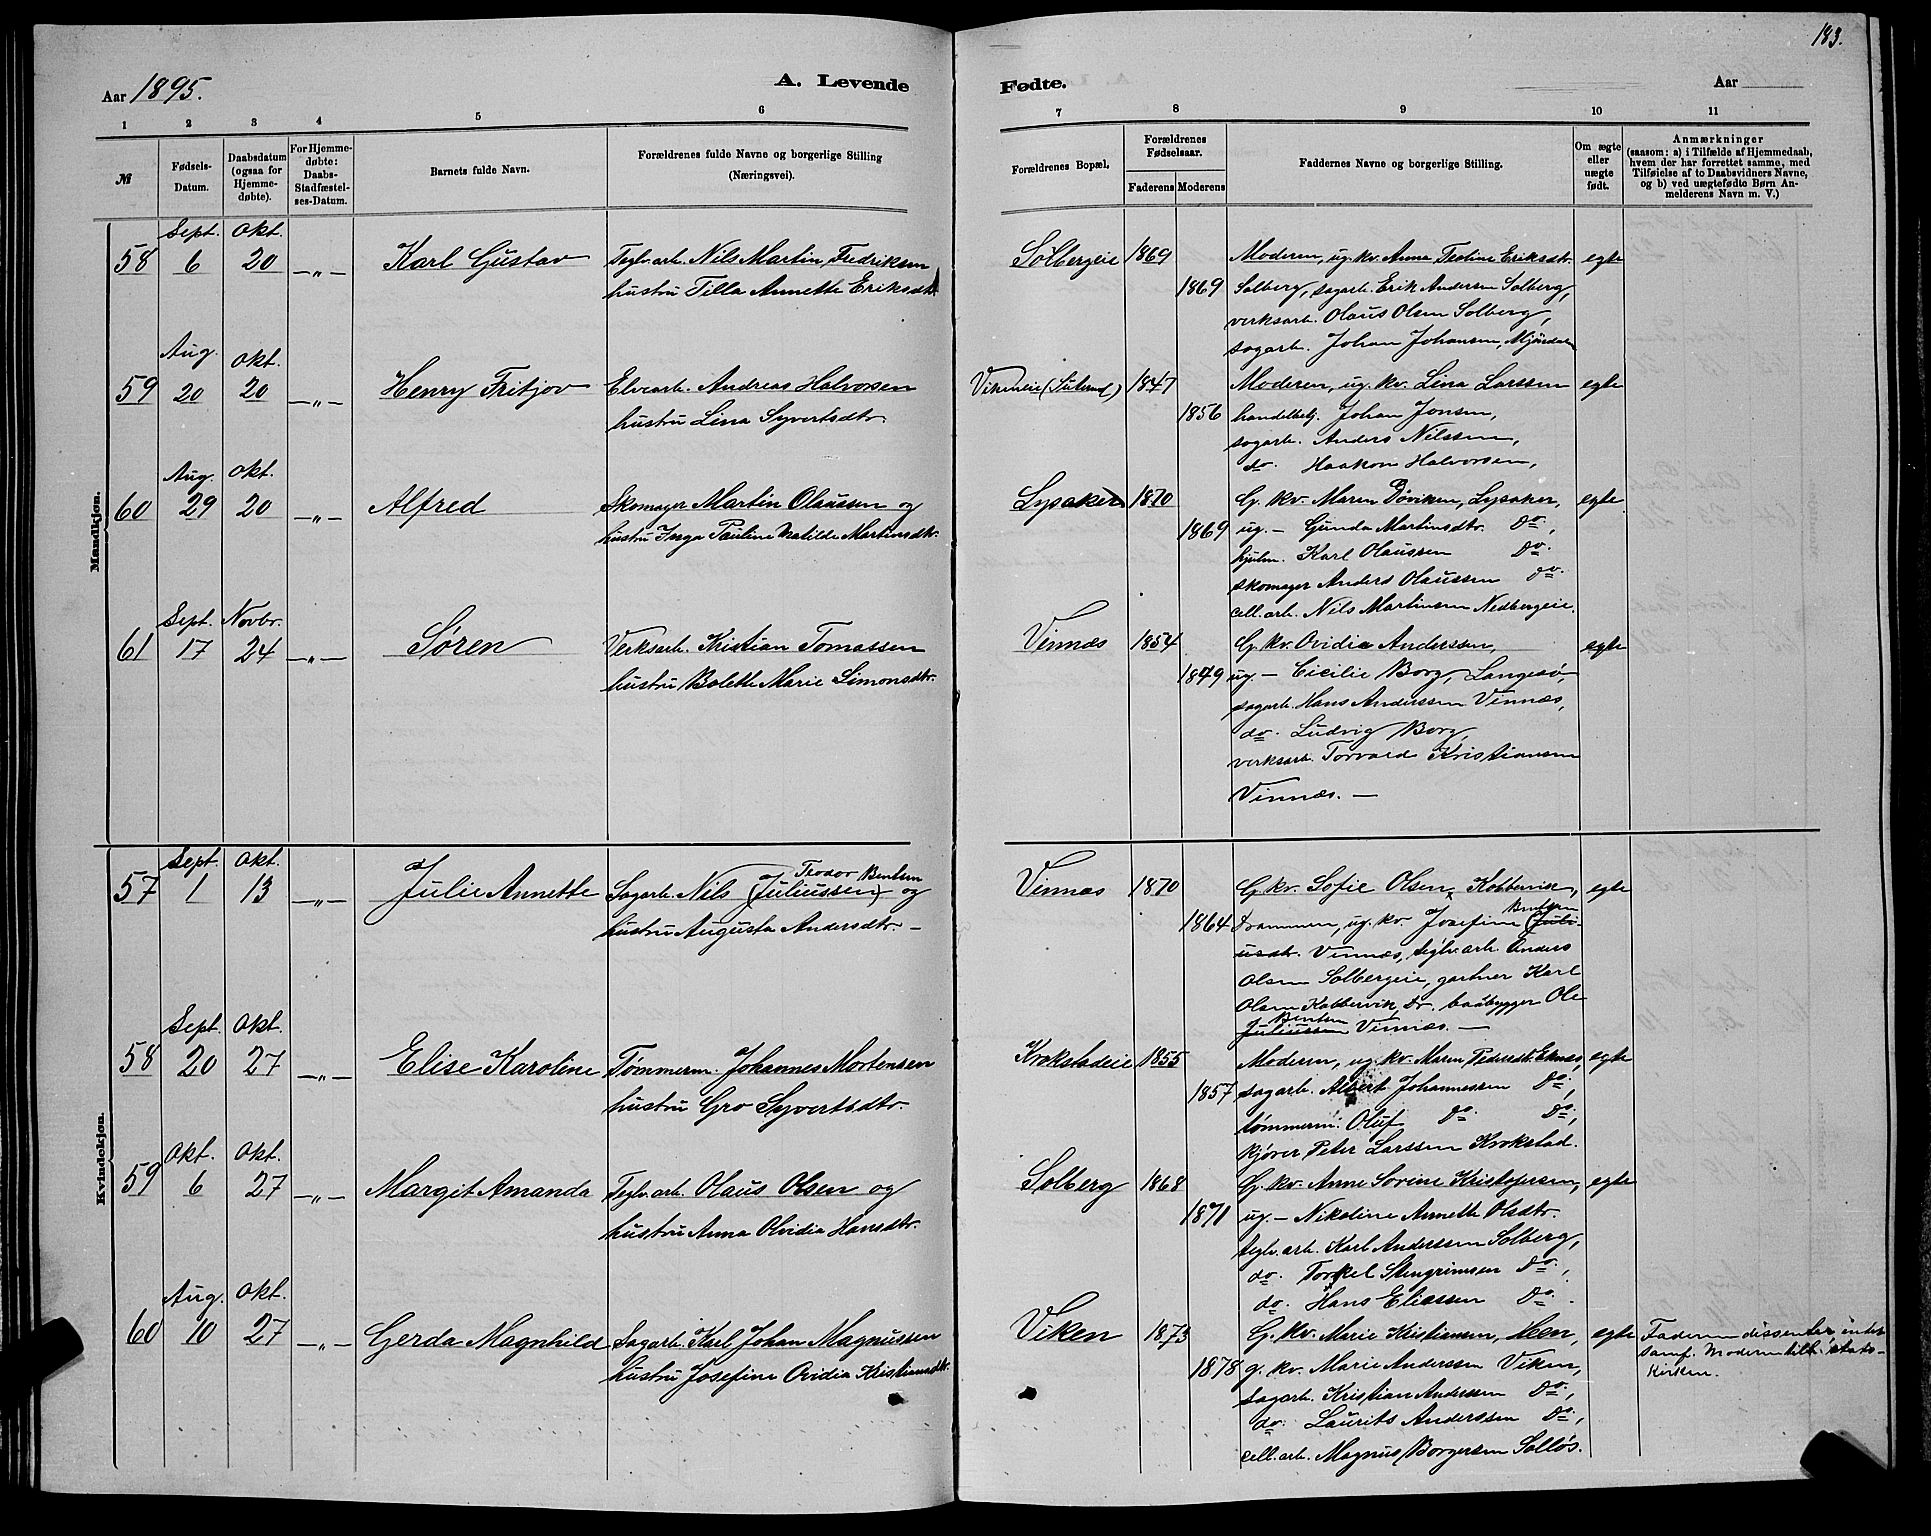 183.
Aar 1895.
A. Levende
Fødte.
Aar
1 2 3 4 5 6 7 8 9 10 11
№
Fødsels-
Datum.
Daabsdatum
(ogsaa for
Hjemme-
døbte).
For Hjemme-
døbte:
Daabs-
Stadfæstel-
ses-Datum.
Barnets fulde Navn.
Forældrenes fulde Navne og borgerlige Stilling
(Næringsvei).
Forældrenes Bopæl.
Forældrenes
Fødselsaar.
Faderens Moderens
Faddernes Navne og borgerlige Stilling.
Om ægte
eller
uægte
født.
Anmærkninger
(saasom: a) i Tilfælde af Hjemmedaab,
hvem der har forrettet samme, med
Tilføielse af to Daabsvidners Navne,
og b) ved uægtefødte Børn An-
melderens Navn m. V.)
Mandkjøn.
Sept. Okt.
58 6 20 —„— Karl Gustav Teglv.arb. Nils Martin Fredriksen
hustru Tilla Annette Eriksdtr.
Solbergeie 1869
1869
Moderen, ug. kv. Anna Teoline Eriksdtr. egte
Solberg, sagarb. Erik Andersen Solberg,
verksarb. Olaus Olsen Solberg,
sagarb. Johan Johansen, Mjøndalen
Aug. Okt.
59 20 20 —„— Henry Fritjov Elvearb. Andreas Halvorsen
hustru Lina Syvertsdtr.
Vikeneie 1847
1856
Moderen, ug. kv. Lina Larssen egte
handelbetj. Johan Jonsen,
sagarb. Anders Nilssen,
do. Haakon Halvorsen,
Aug. Okt.
60 29 20 —„— Alfred Skomager Martin Olaussen og
hustru Inga Pauline Matilde Martinsdtr.
Lysaker 1870
1869
G. kv. Maren Døviken, Lysaker, egte
ug. — Gunda Martinsdtr. Do.,
hjulm. Karl Olaussen Do.
skomager Anders Olaussen do.
cell.arb. Nils Martinsen Nedbergeie.
Sept. Novbr.
61 17 24 —„— Søren Verksarb. Kristian Tomassen
hustru Bolette Marie Simonsdtr.
Vinnæs 1854
1849
G. kv. Ovidia Anderssen, egte
ug. — Cicilie Borg, Langesø,
sagarb. Hans Anderssen Vinnæs,
do. Ludvig Borg,
verksarb. Torvald Kristiansen
Vinnæs. —
Kvindekjøn.
Sept. Okt.
57 1 13 —„— Julie Annette Sagarb. Nils (Juliussen) Teodor Bentsen og
hustru Augusta Andersdtr. —
Vinnæs 1870
1864
G. kv. Sofie Olsen, Kobbervik, egte
Drammen, ug. kv. Josefine Bentsen (Juli-
usdtr. Vinnæs, teglv.arb. Anders
Olsen Solbergeie, gartner Karl
Olsen Kobbervik, Dr. baadbygger Ole
Juliussen Bentsen Vinnæs. —
Sept. Okt.
58 20 27 —„— Elise Karoline Tømmerm. Johannes Mortensen
hustru Gro Syvertsdtr.
Krokstadeie 1855
1857
Moderen, ug. kv. Maren Pedersdtr. Eknes, egte
sagarb. Albert Johannessen Do.,
tømmerm. Oluf do. Do.,
kjører Peter Larssen Krokstad.
Okt. Okt.
59 6 27 —„— Margit Amanda Teglv.arb. Olaus Olsen og
hustru Anna Olvidia Hansdtr.
Solberg 1868
1871
G. kv. Anne Sorine Kristofersen, egte
ug. — Nikoline Annette Olsdtr.
teglv.arb. Karl Anderssen Solberg,
do. Torkel Stengrimsen Do.,
do. Hans Eliassen Do.
Aug. Okt.
60 10 27 —„— Gerda Magnhild Sagarb. Karl Johan Magnussen
hustru Josefine Ovidia Kristiansdtr.
Viken 1873
1878
G. kv. Marie Kristiansen, Heen, egte
g. kv. Marie Anderssen Viken,
sagarb. Kristian Andersen Do.,
do. Laurits Anderssen Do.,
cell.arb. Magnus Borgersen Solløs.
Faderen dissenter
samf. Moderen tilh. stats-
kirken.